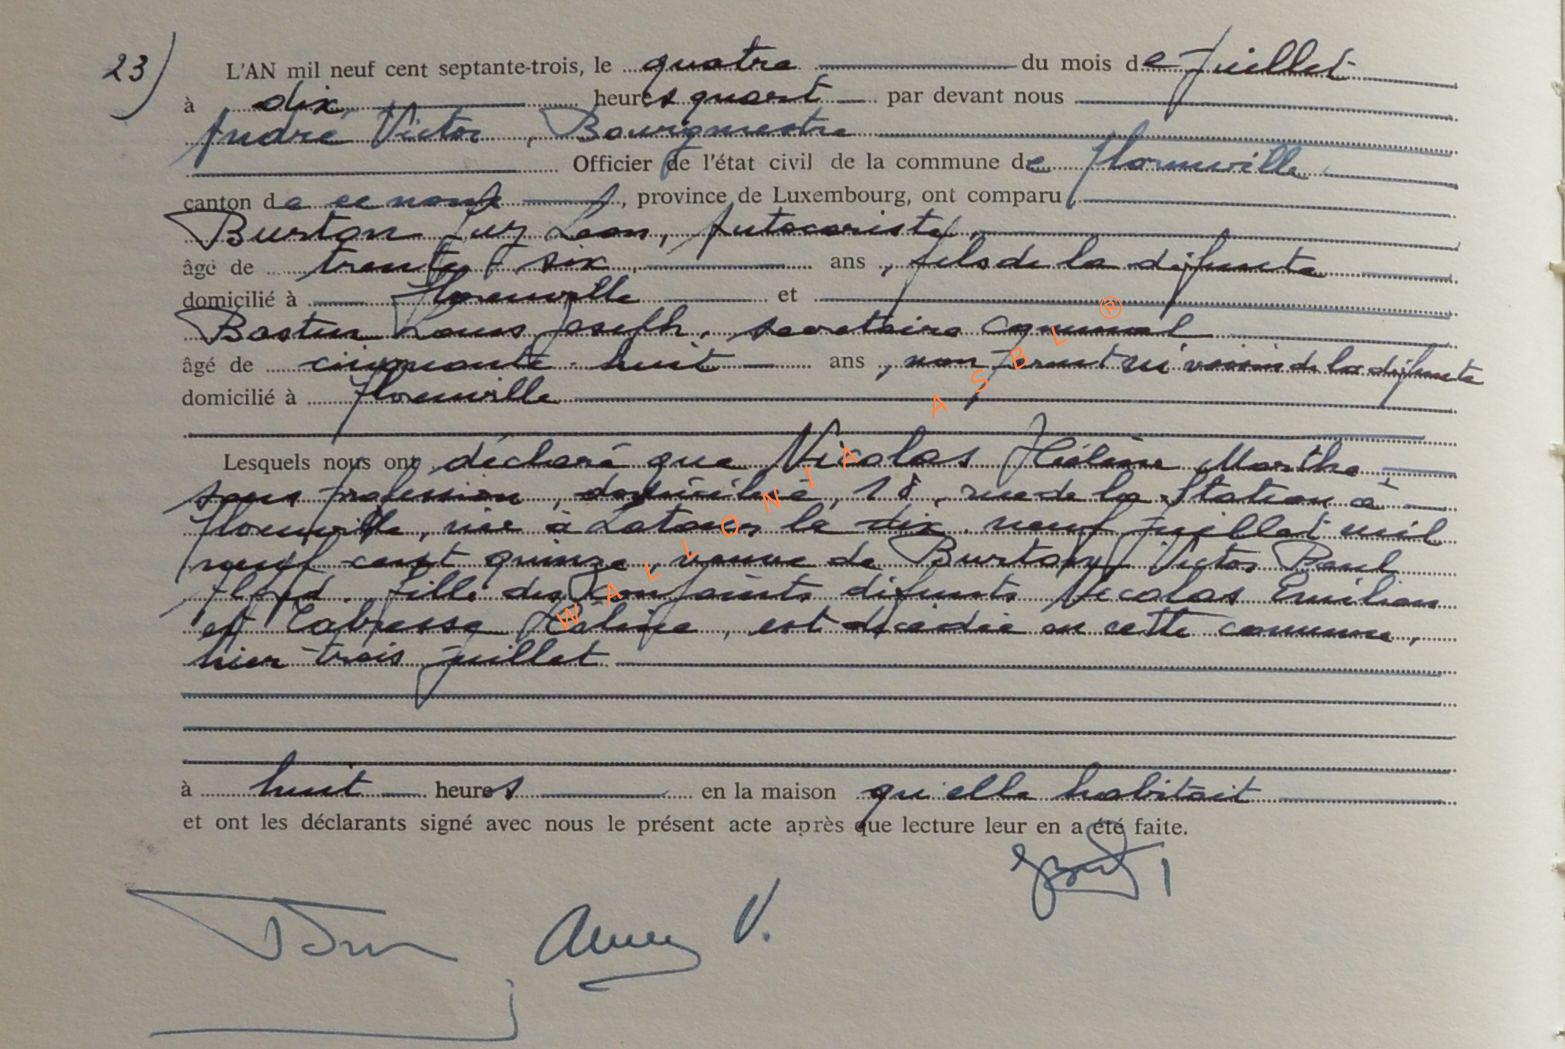 23) L'AN mil neuf cent septante-trois, le quatre du mois de Juillet
à dix heures quart par devant nous
André Victor, Bourgmestre
Officier de l'état civil de la commune de Florenville
canton de ce nom, province de Luxembourg, ont comparu
Burton Guy Léon, Autocariste,
âgé de trente six ans, fils de la défunte
domicilié à Florenville et
Bastin Louis Joseph, secrétaire communal
âgé de cinquante huit ans, non parent ni voisin de la défunte
domicilié à Florenville
Lesquels nous ont déclaré que Nicolas Hélène Marthe
sans profession, domiciliée, 18, rue de la Station à
Florenville, née à Latour le dix neuf juillet mil
neuf cent quinze, veuve de Burton Victor Paul
fille des conjoints défunts Nicolas Emilien
et est décédée en cette commune,
hier trois juillet
à huit heures en la maison qu'elle habitait
et ont les déclarants signé avec nous le présent acte après que lecture leur en a été faite.
V.
WALLONIA ASBL ®